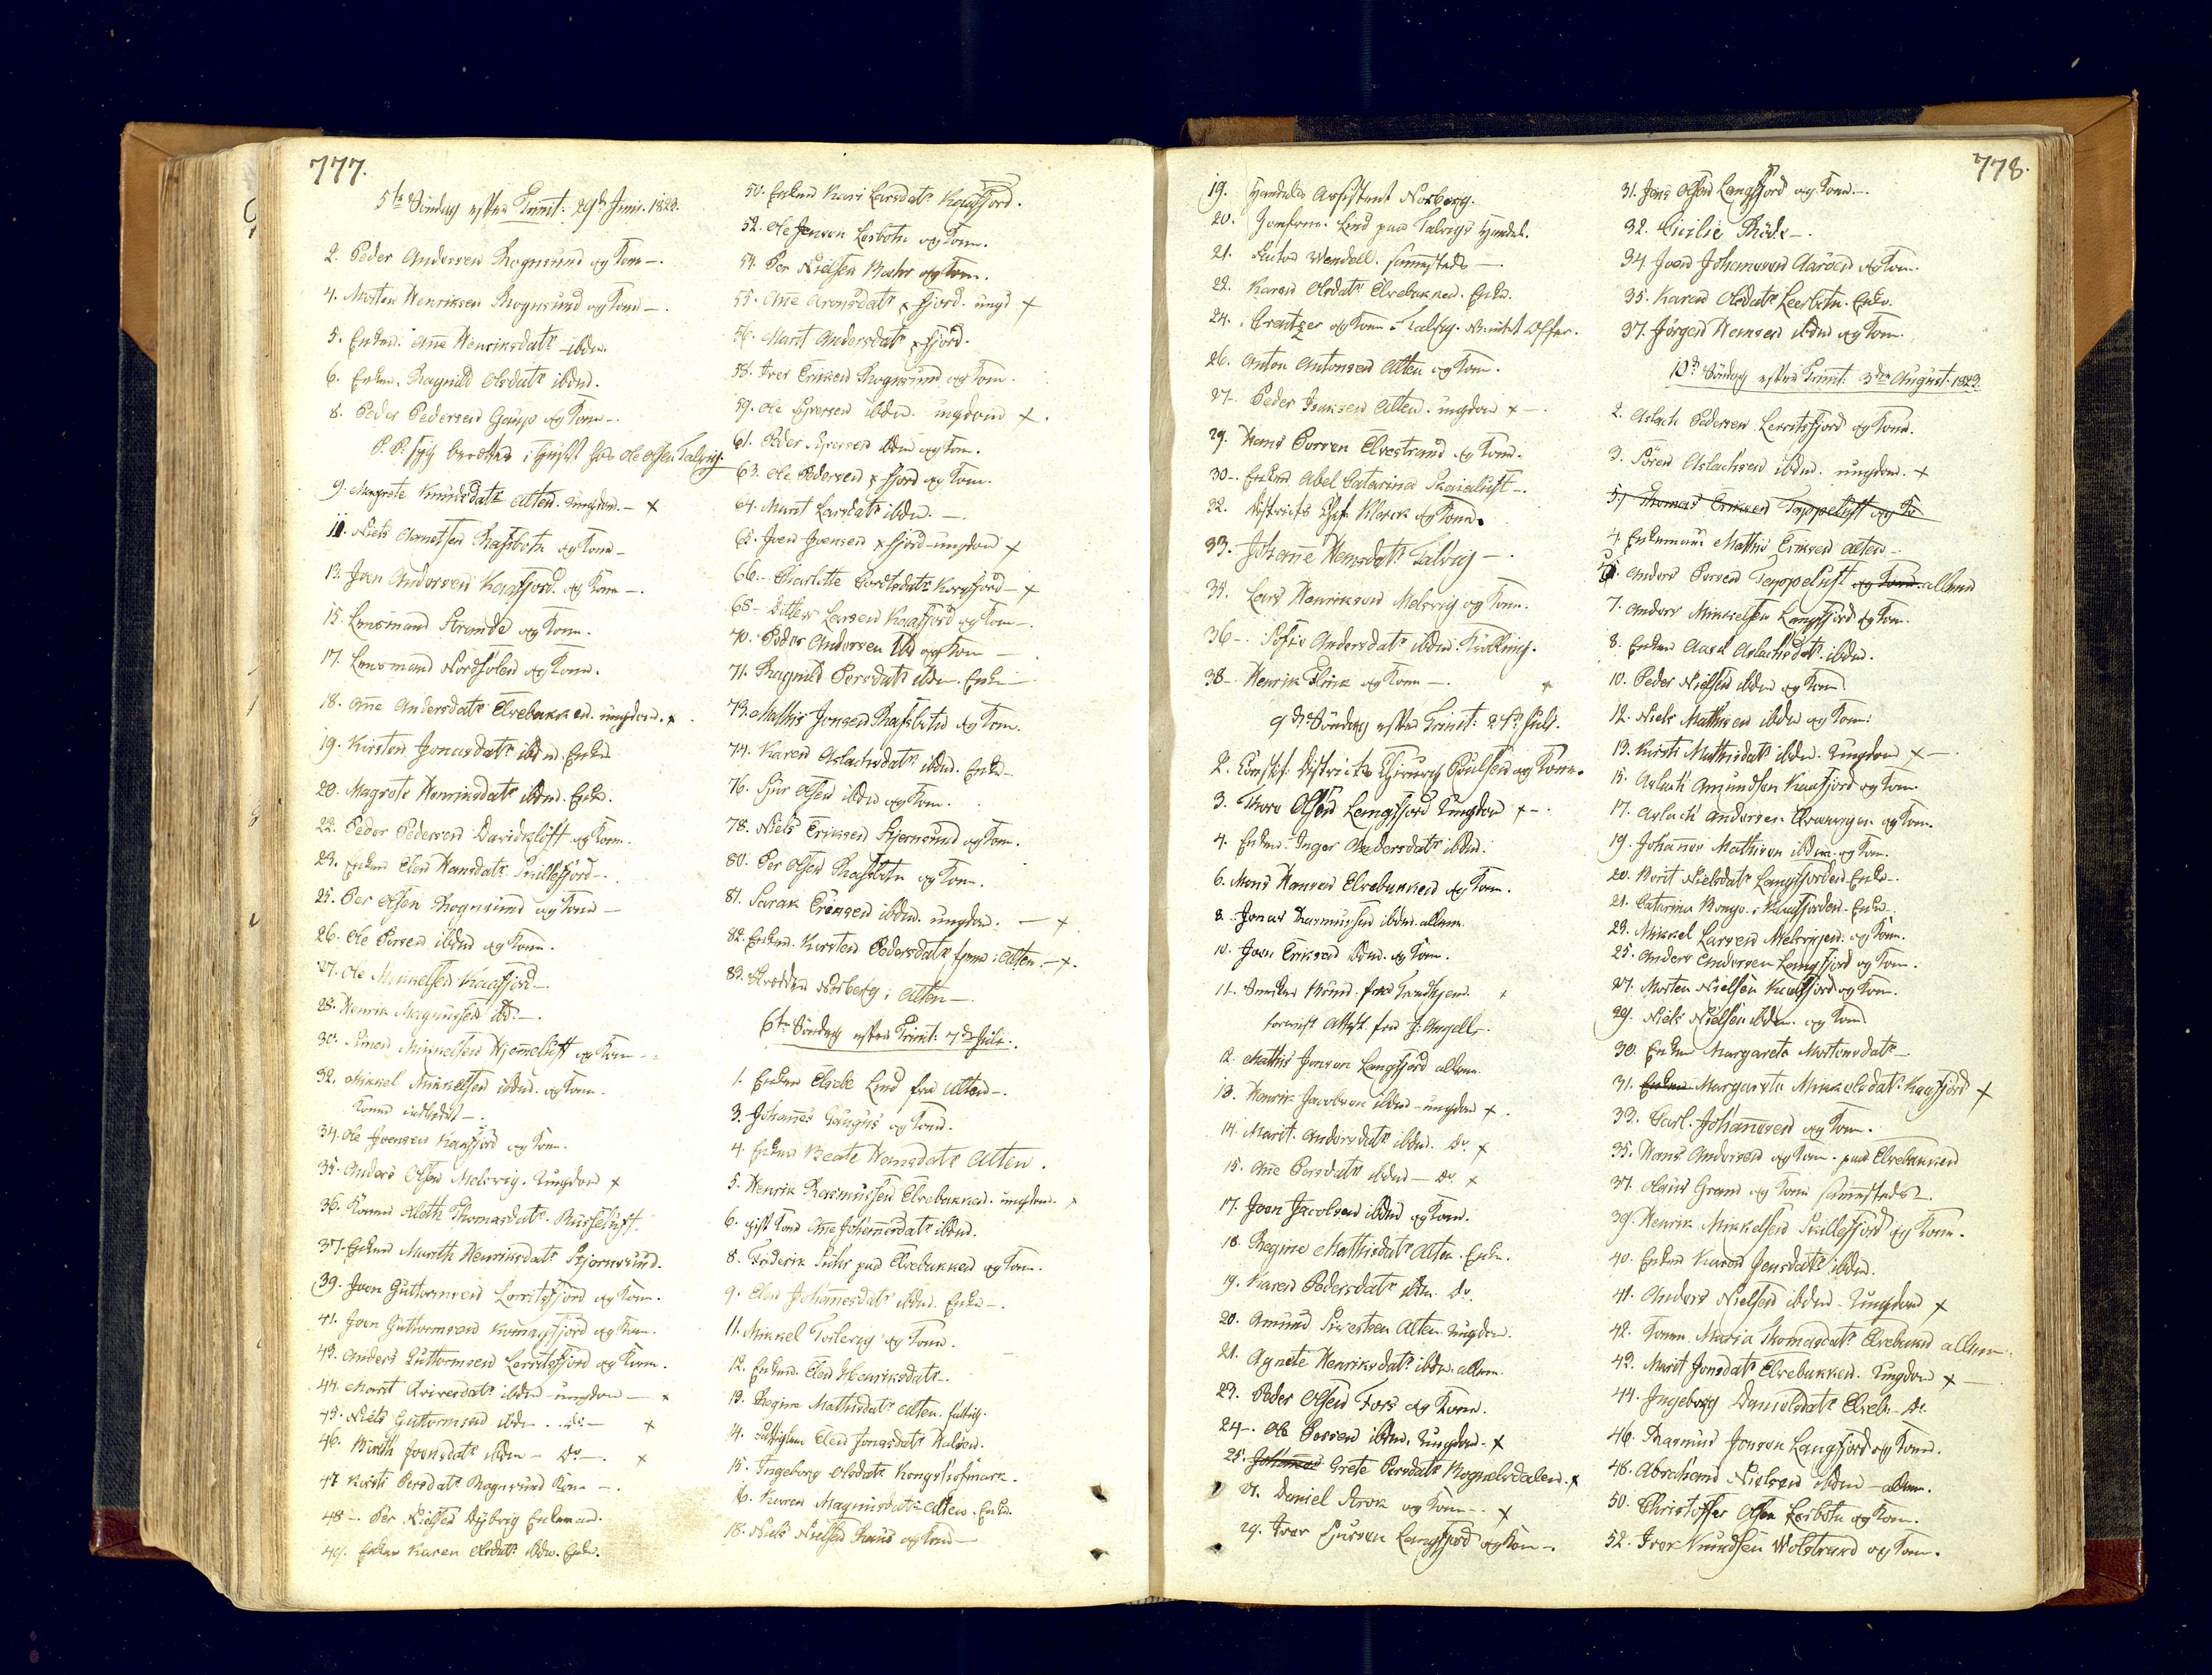 777.
5te Söndag efter Trinit: 29de Junii. 1823.
2. Peder Andersen Rognsund og Kone -.
4. Morten Henriksen Rognsund og Kone -.
5. Enken. Añe Henriksdatr ibdm.
6. Enken. Ragnild Olsdatr ibdm.
8. Peder Pedersen Gaup og Kone -.
P.P. syg berettet i Huset hos Ole Olsen Talvig.
9. Magrete Knudsdatr Alten. Ungdom. - x
11. Niels Ametsen Rafsbotn og Kone -
13. Joen Andersen Kaafjord. og Kone -.
15. Lensmand Strunde og Kone.
17. Lensmand Nordfolen og Kone.
18. Añe Andersdatr Elvebakken. ungdom. x
19. Kirsten Jonasdatr ibdm. Enke
20. Magrete Henriksdatr ibdm. Enke.
22. Peder Pedersen Davidsluft og Kone.
23. Enken Elen Hansdatr Skillefjord -.
25. Per Olsen Rognsund og Kone -
26. Ole Persen ibdm og Kone.
27. Ole Mikkelsen Kaafjord -.
28. Henrik Magnussen ibd: -.
30. Simen Mikkelsen Hjemeluft og Kone -.
32. Mikkel Mikkelsen ibdm. og Kone.
Konen indledet -.
34. Ole Joensen Kaafjord og Kone.
35. Anders Olsen Melsvig. Ungdom x
36. Konen Aleth Thomasdatr. Russeluft.
37. Enken Marith Henriksdatr Stjernsund.
39. Joen Guttormsen Lerritsfjord og Kone.
41. Joen Guttormsen Komagfjord og Kone.
43. Anders Guttormsen Lerritsfjord og Kone.
44. Marit Iversdatr ibdm - ungdom - x
45. Niels Guttormsen ibdm. Do - x
46. Birith Joensdatr ibdm - Do -. x
47. Kirsti Persdatr Rognsund Kone -.
48 -. Per Nielsen Dybvig Enkemand.
49. Enken Karen Olsdatr ibdm. Enke.
50. Enken Kari Larsdatr Kaafjord.
52. Ole Jensen Lerbotn og Kone.
54. Per Nielsen Bakr og Kone.
55. Añe Aronsdatr x fjord. ungd x
56. Marit Andersdatr x fjord.
58. Iver Eriksen Rognsund og Kone.
59. Ole Iversen ibdm. ungdom x.
61. Peder Iversen ibdm og Kone.
63. Ole Pedersen x fjord og Kone.
64. Marit Larsdatr ibdm. -.
65. Joen Joensen x fjord - ungdom x
66 -. Charlotte Cordtsdatr Korsfjord - x
68 - Ditlev Larsen Kaafjord og Kone -.
70. Peder Andersen ibd og Kone -
71. Ragnild Persdatr ibdm. Enke -.
73. Mathis Jonsen Rafsbotn og Kone.
74. Karen Aslachsdatr ibdm. Enke -
76. Siur Olsen ibdm og Kone.
78. Niels Eriksen Stjernsund og Kone.
80. Per Olsen Rafsbotn og Kone.
81. Sarak Eriksen ibdm. ungdom. - x
82. Enken. Kirsten Pedersdatr hjeme i Alten. - x.
83. Skredder Norberg i Alten -.
6te Söndag efter Trinit: 7de Julii.
1. Enken Elsebe Lind fra Alten -.
3. Johañes Gangus og Kone.
4. Enken Beate Hansdatr Alten.
5. Henrik Rasmussen Elvebakken. ungdom. x
6. gift Kone Añe Johañesdatr ibdm.
8. Friderik Suhr paa Elvebakken og Kone.
9. Elen Johañesdatr ibdm. Enke -.
11. Mikkel Toslevig og Kone.
12. Enken Elen Henriksdatr -.
13. Regine Mathisdatr Alten. fattig.
14. Fattiglem Elen Jonasdatr Halsen.
15. Ingeborg Olsdatr Kongshofmark.
16. Karen Magnusdatr Alten. Enke.
18. Niels Nielsen Raud og Kone -
778.
19. Handels Assistent Norberg.
20. Jomfrue. Lind paa Talvigs Handel.
21. Wendell. samesteds -
22. Karen Olsdatr Elvebakken. Enke.
24. Creutzer og Kone i Talvig. Offer.
26. Anton Antonsen Alten og Kone.
27. Peder Isaksen Alten. ungdom x -.
29. Hans Persen Elvestrand og Kone.
30 -. Enken Abel Catarina Skaialuft -.
32. Districts Klerck og Kone.
33. Johañe Hansdatr Talvig -.
34. Lars Henriksen Melsvig og Kone.
36 -. Sofie Andersdatr ibdm. Kielling.
38 -. Henrik Flink og Kone -.
9de Söndag efter Trinit: 27de Juli.
2. Constit. Districts Chirurg Poulsen og Kone.
3. Thore Olsen Langfjord Ungdom x -.
4. Enken Inger Andersdatr ibdm.
6. Mons Hansen Elvebakken og Kone.
8. Jonas Rasmussen ibdm. allene.
10. Joen Eriksen ibdm. og Kone.
11. Snedker Brun. fra Trondhjem. x
foreviist Attest fra J. Angell.
12. Mathis Jonsen Langfjord allene.
13. Henrik Jacobsen ibdm - ungdom x.
14. Marit Andersdatr ibdm. Do. x
15. Añe Persdatr ibdm - Do x
17. Joen Jacobsen ibdm og Kone.
18. Regine Mathisdatr Alten. Enke.
19. Karen Pedersdatr ibdm. Do.
20. Amund Sivertsen Alten. Ungdom.
21. Agnete Henriksdatr ibdm. allene.
23. Peder Olsen Fors og Kone.
24 -. Ole Persen ibdm. Ungdom. x
25. Johañes Grete Persdatr Bognelvdalen. x
27. Daniel Arvk og Kone -. x
29. Iver Siursen Langfjord og Kone -.
31. Jens Olsen Langfjord og Kone -.
32. Cicilie Röde -.
34. Joen Johannesen Aaröen og Kone.
35. Karen Olsdatr Leerbotn. Enke.
37. Jörgen Hemsen ibdm og Kone.
10de Söndag efter Trinit: 3die August. 1823.
2. Aslach Pedersen Lerritsfjord og Kone.
3. Sören Aslachsen ibdm. ungdom. x
5. Thomas Eriksen Toppeluft og Ko
4. Enkemand Mathis Eriksen Alten -.
5. Anders Persen Toppeluft og Kone. allene
7. Anders Mikkelsen Langfjord og Kone.
8. Enken Aasel Aslachsdatr. ibdm.
10. Peder Nielsen ibdm og Kone
12. Niels Mathisen ibdm og Kone.
13. Kirsti Mathisdatr ibdm. Ungdom x -.
15. Aslach Amundsen Kaafjord og Kone.
17. Aslach Andersen og Kone.
19. Johañes Mathisen ibdm. og Kone.
20. Berit Nielsdatr Langfjorden Enke -.
21. Catarina Bongo. i Kaafjorden. Enke.
23. Mikkel Larsen Melsvigen. og Kone.
25. Anders Andersen Langfjord og Kone.
27. Morten Nielsen Kaafjord og Kone.
29. Niels Nielsen ibdm. og Kone
30. Enken Margarete Mortensdatr -
31. Enken Margarete Mikkelsdatr. Kaafjord x
33. Carl. Johannesen og Kone.
35. Hans Andersen og Kone. paa Elvebakken
37. Olaus Grand og Kone samestedst.
39. Henrik Mikkelsen Skillefjord og Kone.
40. Enken Karen Jensdatr ibdm.
41. Anders Nielsen ibdm - Ungdom x
42. Konen Maria Thomasdatr Elvebaken allene.
42. Marit Jonsdatr Elvebakken. Ungdom x -
44. Ingeborg Danielsdatr Elveb. Do
46. Rasmus Jonsen Langfjord og Kone.
48. Abraham Nielsen ibdm - allene.
50. Christoffer Olsen Lerbotn og Kone.
52. Iver Knudsen Wolstrand og Kone.